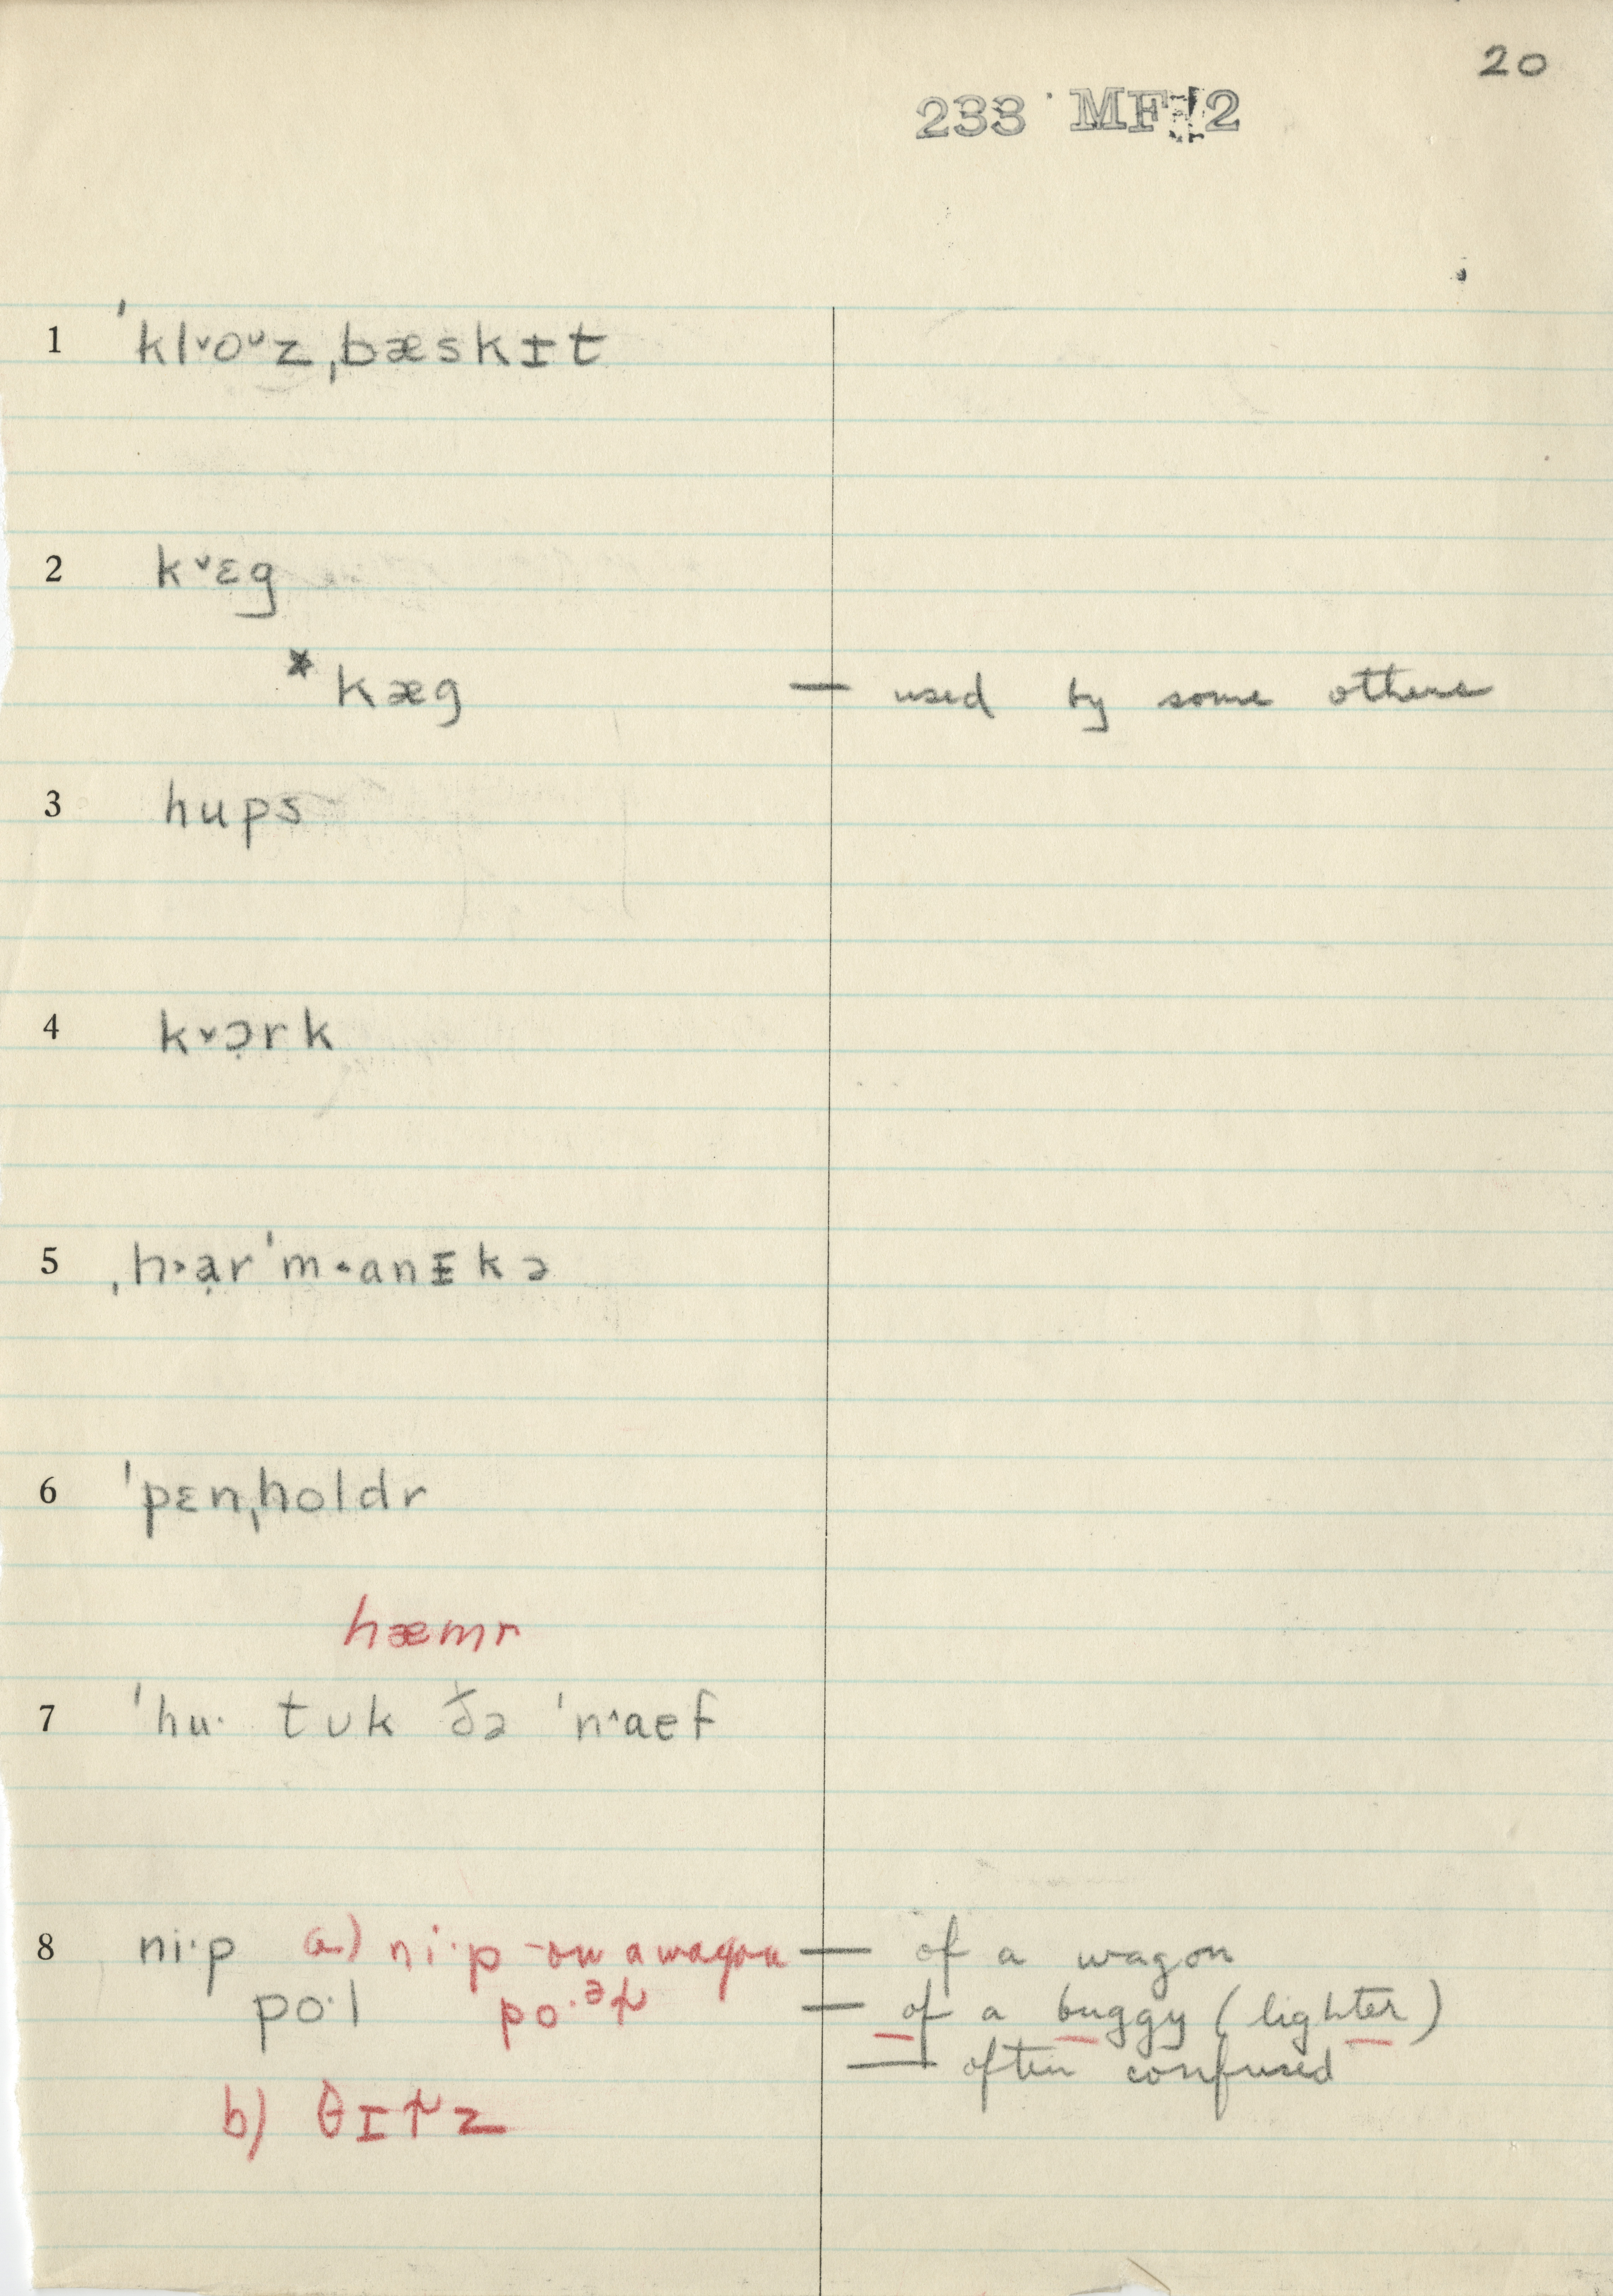 20
233 MF 2
1 ˈkl˅o˅z ˌbæskɪt
2 k˅ɛg
*kæg — used by some others
3 hups
4 k˅ɔ̣rk
5 ˌh˃ạrˈm˂anɪkə
6 ˈpɛnˌholdr
hæmr
7 ˈhu· tʊk ðə ˈn˄aef
8 ni·p a) ni·p - on a wagon — of a wagon
po·l po·ᵊɫ — of a buggy (lighter)
— often confused
b) θɪɫz